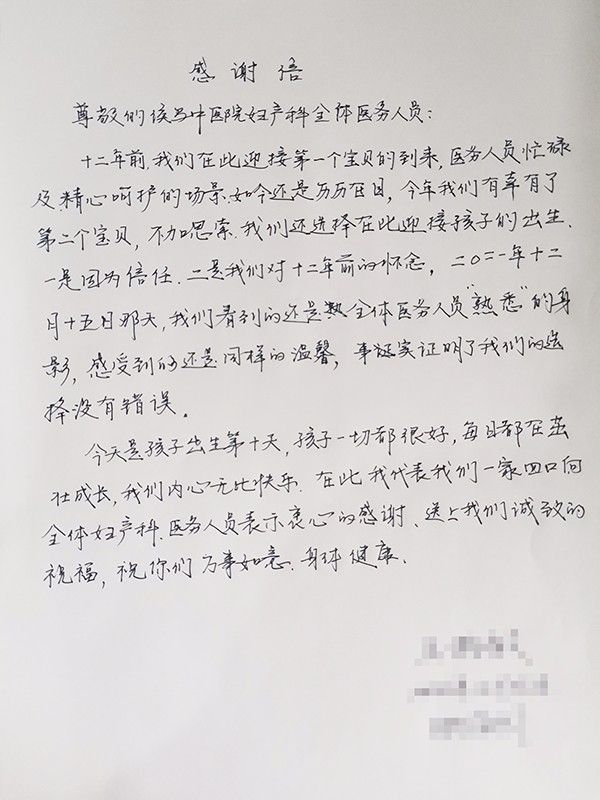 感谢信
尊敬的侯马中医院妇产科全体医务人员：
十二年前.我们在此迎接第一个宝贝的到来,医务人员忙碌
及精心呵护的场景.如今还是历历在目,今年我们有幸有了
第二个宝贝,不加思索.我们还选择在此迎接孩子的出生.
一是因为信任.二是我们对十二年前的怀念,二〇二一年十二
月十五日那天,我们看到的还是全体医务人员“熟悉”的身
影,感受到的还是同样的温馨,事实证明了我们的选
择没有错误。
今天是孩子出生第十天,孩子一切都很好,每日都在茁
壮成长,我们内心无比快乐.在此我代表我们一家四口向
全体妇产科.医务人员表示衷心的感谢、送上我们诚致的
祝福,祝你们万事如意.身体健康.